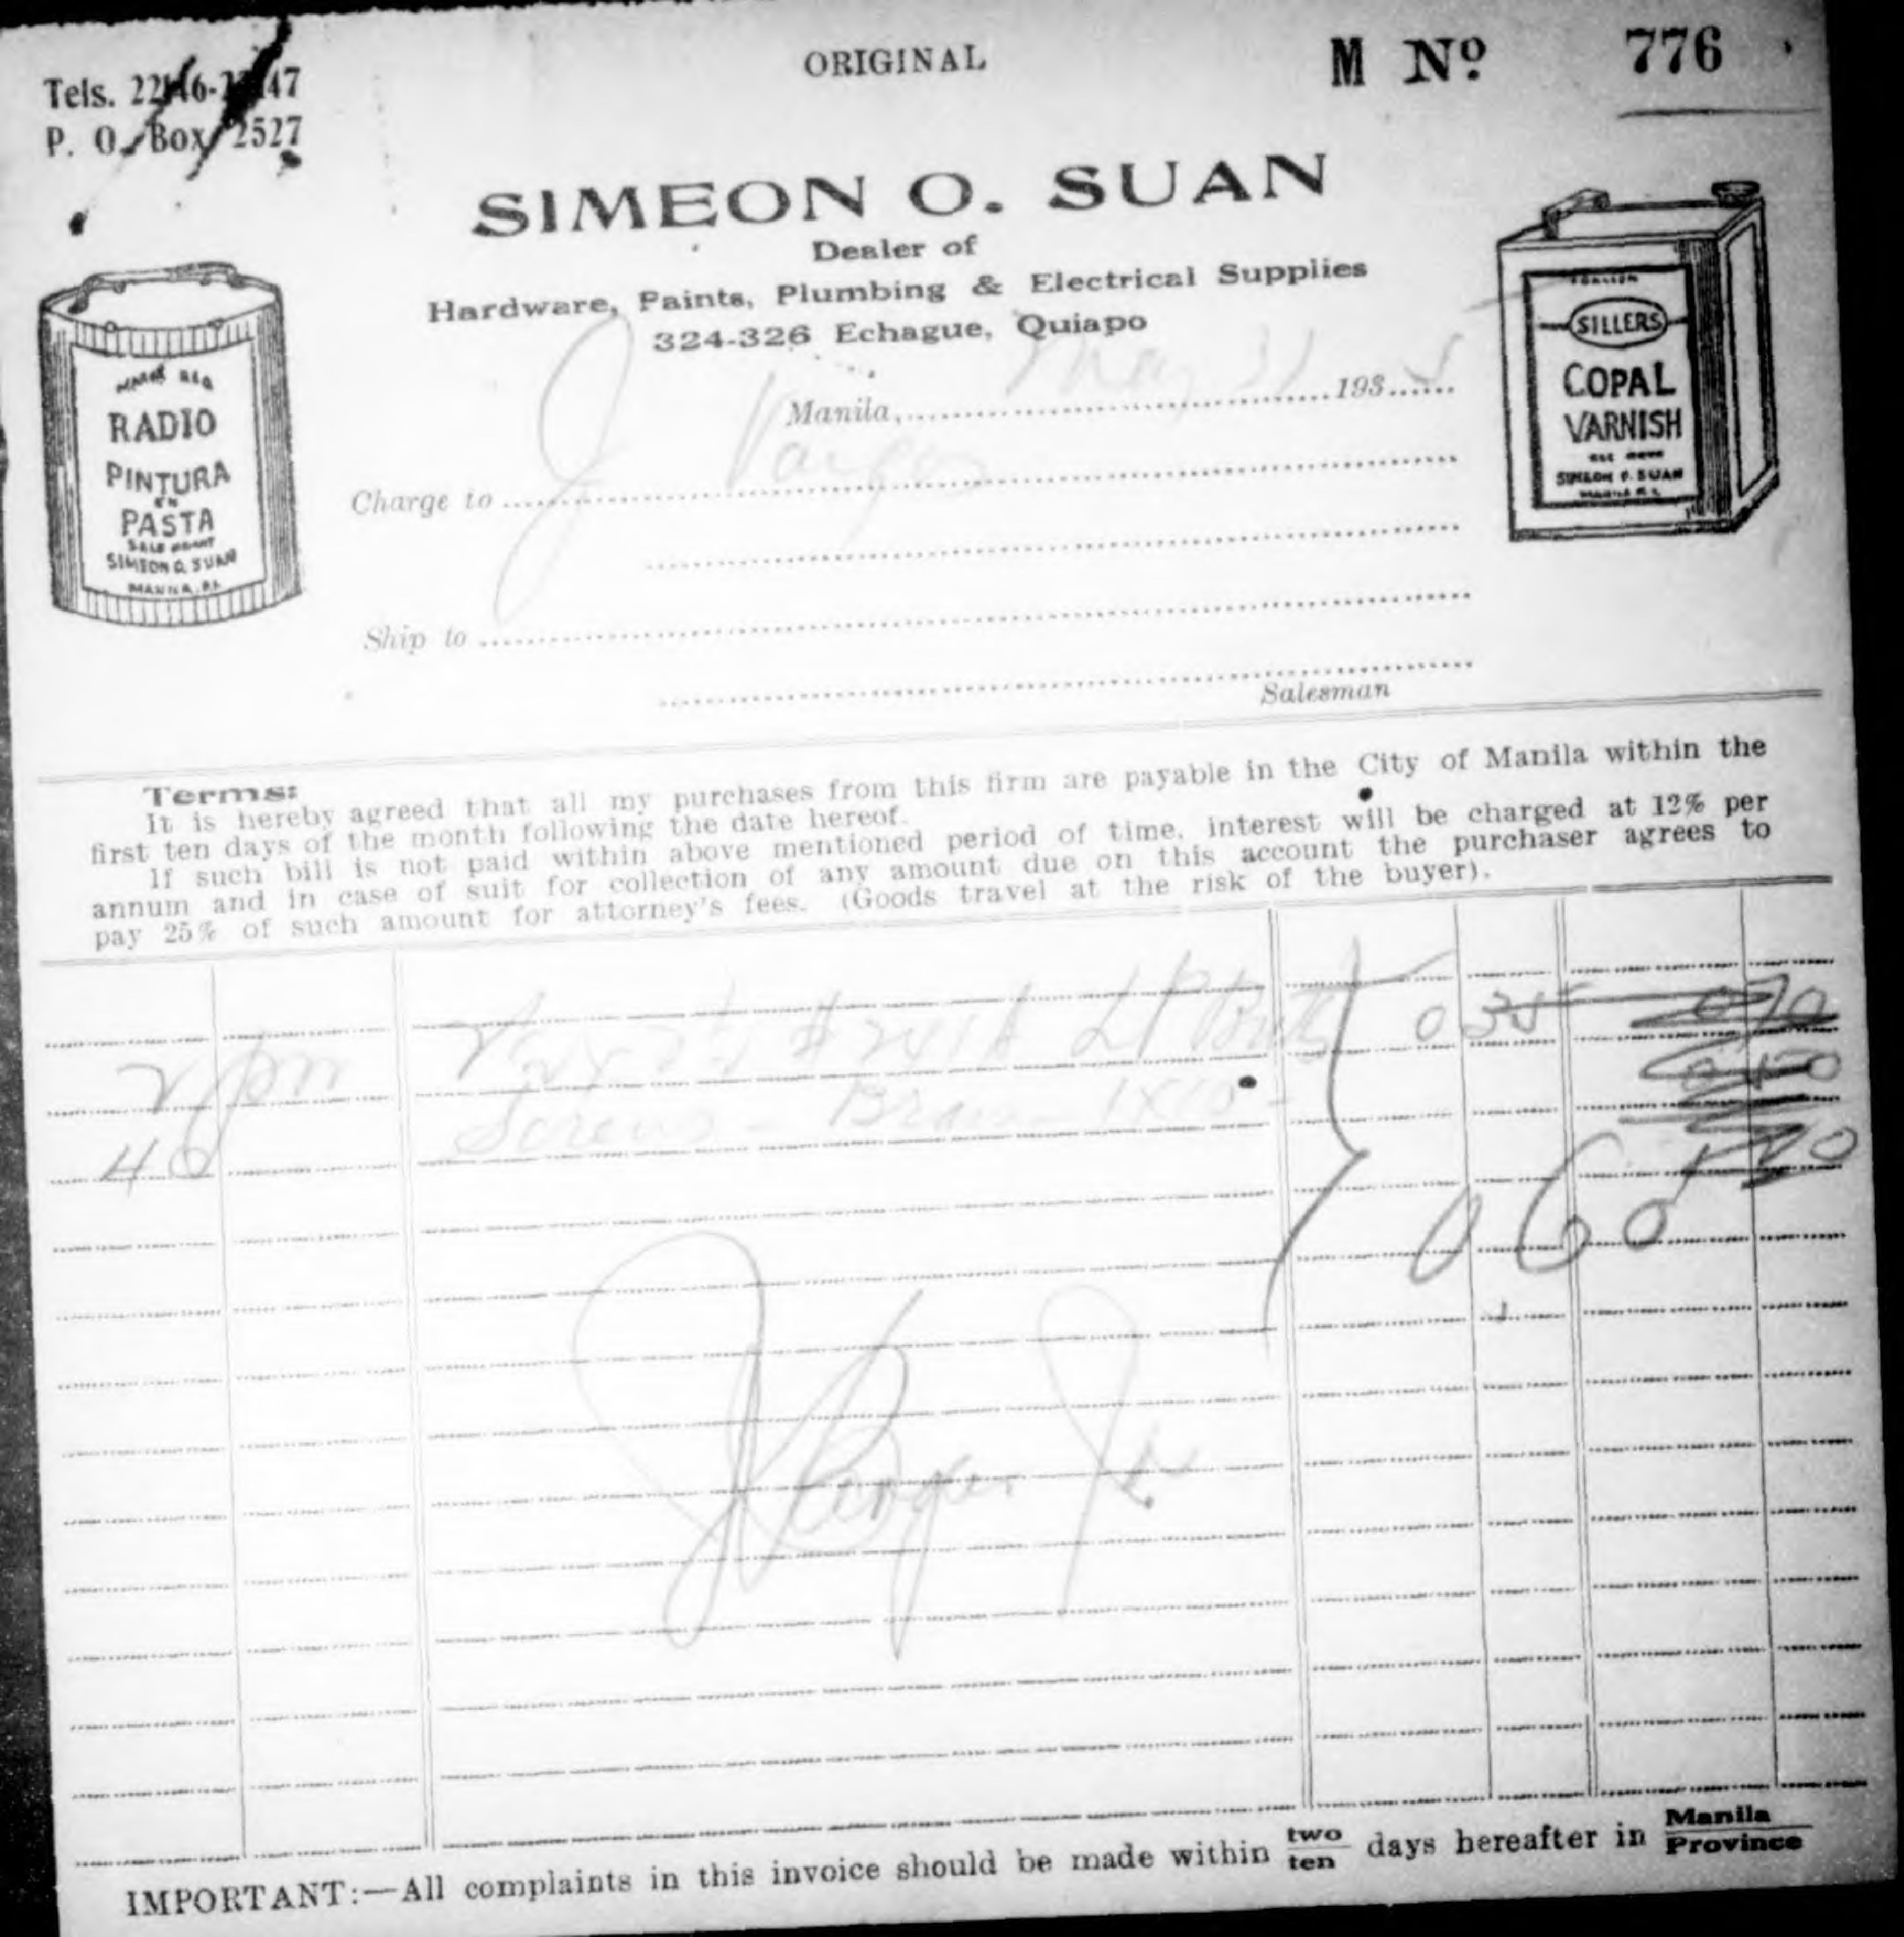 Tels. 22146-
P. O. Box 2527
ORIGINAL
M Nº 776
SIMEON O. SUAN
Dealer of
Hardware, Paints, Plumbing & Electrical Supplies
324-326 Echague, Quiapo
RADIO
PINTURA
EN
PASTA
SIMEON O. SUAN
MANILA, P.I.
SILLERS
COPAL
VARNISH
SIMEON O. SUAN
MANILA P.I.
Manila, May 31 1935
Charge to J Vargas
Ship to
Salesman
Terms:
It is hereby agreed that all my purchases from this firm are payable in the City of Manila within the
first ten days of the month following the date hereof.
If such bill is not paid within above mentioned period of time, interest will be charged at 12% per
annum and in case of suit for collection of any amount due on this account the purchaser agrees to
pay 25% of such amount for attorney's fees. (Goods travel at the risk of the buyer).
2 0 35 0 70
40 Screws - 1X10
0 60
J Vargas Jr.
IMPORTANT:—All complaints in this invoice should be made within two/ten days hereafter in Manila/Province